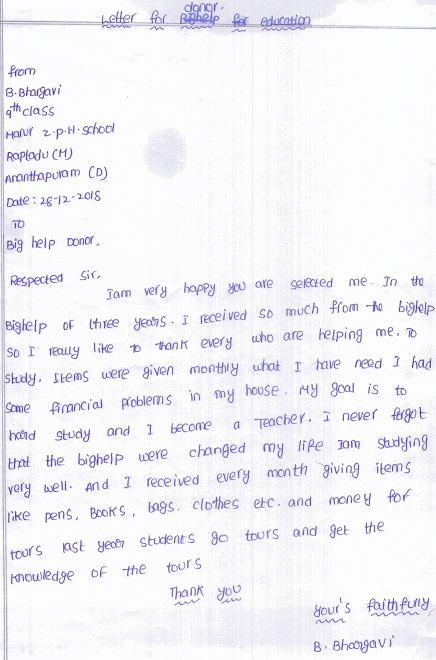 donor.
Letter for Bighelp for education
from
B.Bhargavi
9th class
Marur z.p.H.school
Rapladu (M)
Ananthapuram (D)
Date : 28-12-2018
TO
Big help Donor.
Respected Sir,
Iam very happy you are selected me. In the
Bighelp of three years. I received so much from the bighelp
so I really like to thank every who are helping me. To
study. Items were given monthly what I have need I had
some financial problems in my house. My goal is to
heard study and I become a Teacher. I never forgot
that the bighelp were changed my life Iam studying
very well. And I received every month giving items
like pens, Books, bags. clothes etc. and money for
tours last year students go tours and get the
knowledge of the tours
Thank you
your's faithfully
B. Bhargavi